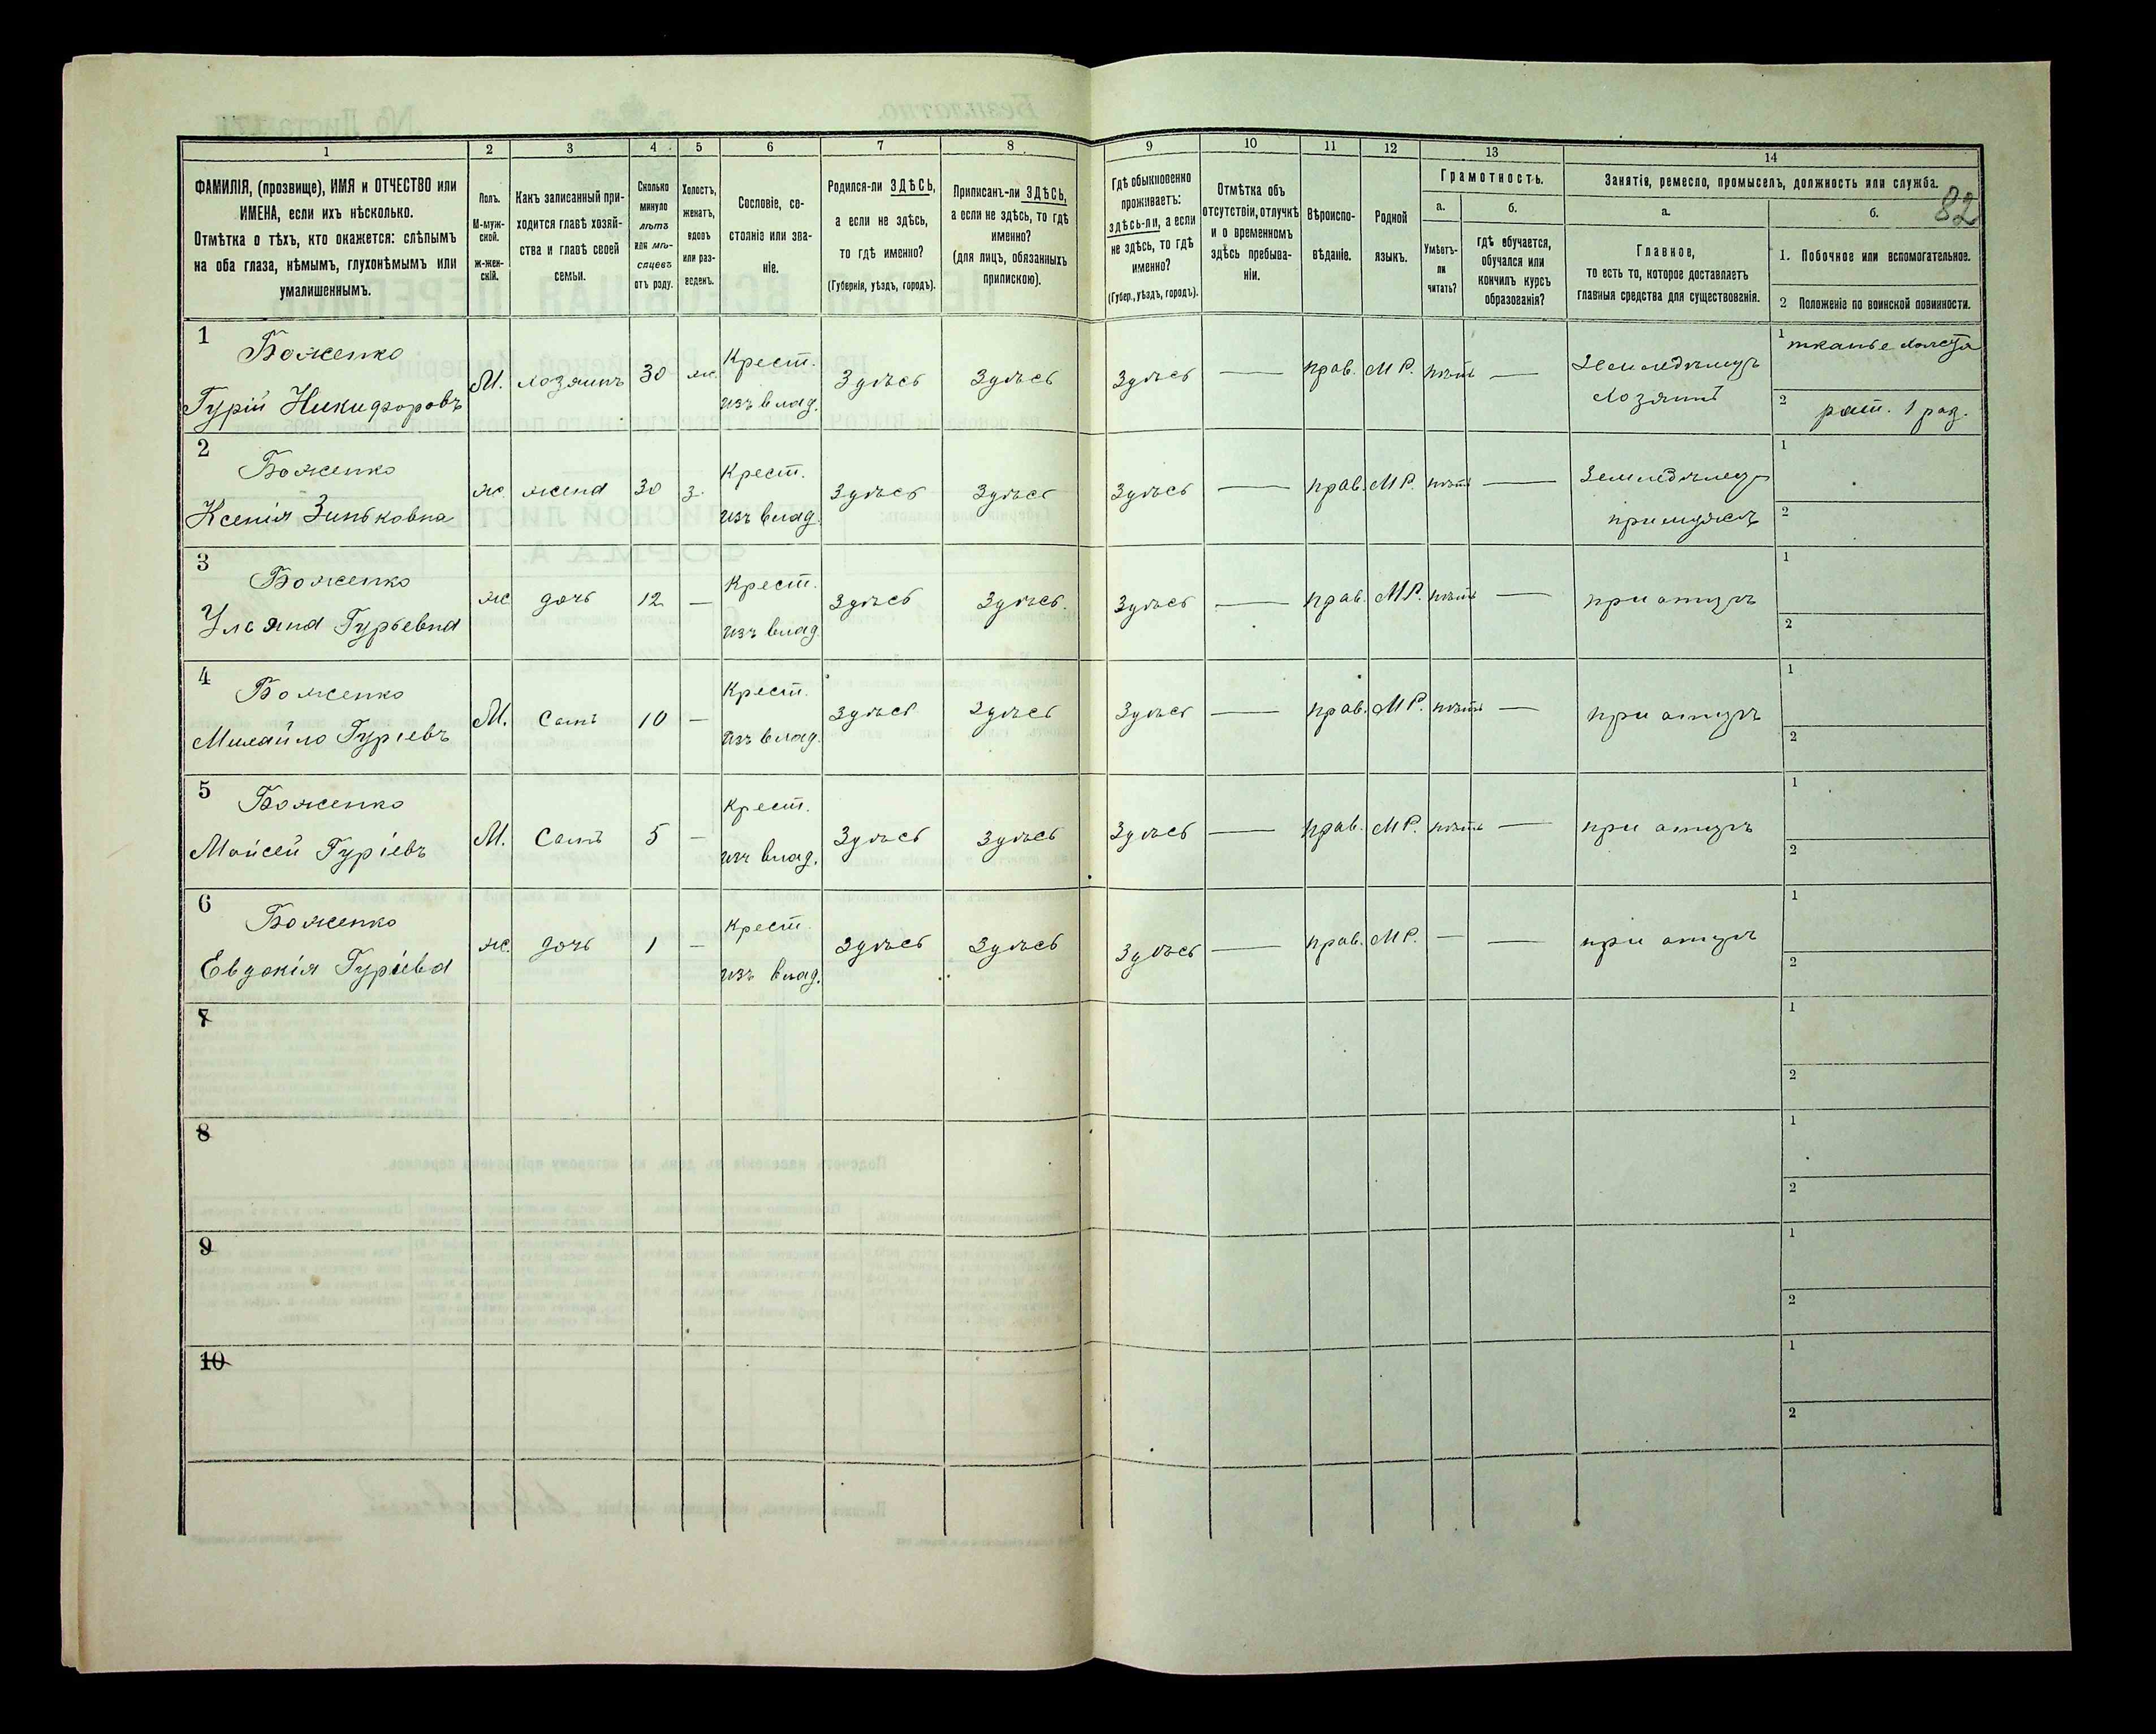 82
1
2
3
4
5
6
7
8
9
10
11
12
13
14
ФАМИЛІЯ, (прозвище), ИМЯ и ОТЧЕСТВО или
ИМЕНА, если ихъ нѣсколько.
Отмѣтка о тѣхъ, кто окажется: слѣпымъ
на оба глаза, нѣмымъ, глухонѣмымъ или
умалишеннымъ.
Полъ.
М-муж-
ской.
ж-жен-
скій.
Какъ записанный при-
ходится главѣ хозяй-
ства и главѣ своей
семьи.
Сколько
минуло
лѣтъ
или мѣ-
сяцевъ
отъ роду.
Холостъ,
женатъ,
вдовъ
или раз-
веденъ.
Сословіе, со-
стояніе или зва-
ніе.
Родился-ли ЗДѢСЬ,
а если не здѣсь,
то гдѣ именно?
(Губернія, уѣздъ, городъ).
Приписанъ-ли ЗДѢСЬ,
а если не здѣсь, то гдѣ
именно?
(для лицъ, обязанныхъ
припискою).
Гдѣ обыкновенно
проживаетъ:
здѣсь-ли, а если
не здѣсь, то гдѣ
именно?
(Губер., уѣздъ, городъ).
Отмѣтка объ
отсутствіи, отлучкѣ
и о временномъ
здѣсь пребыва-
ніи.
Вѣроиспо-
вѣданіе.
Родной
языкъ.
Грамотность.
а.
б.
Умѣетъ-
ли
читать?
гдѣ обучается,
обучался или
кончилъ курсъ
образованія?
Занятіе, ремесло, промыселъ, должность или служба.
а.
б.
Главное,
то есть то, которое доставляетъ
главныя средства для существованія.
1. Побочное или вспомогательное.
2 Положеніе по воинской повинности.
1
Боженко
Гурій Никифоровъ
М.
хозяинъ
30
ж.
Крест.
изъ влад.
Здѣсь
Здѣсь
Здѣсь
—
прав.
МР.
нѣтъ
—
Земледѣлецъ
хозяинъ
1
тканье холста
2
рат. 1 раз.
2
Боженко
Ксенія Зиньковна
ж.
жена
30
з.
Крест.
изъ влад.
Здѣсь
Здѣсь
Здѣсь
—
прав.
МР.
нѣтъ
—
Земледѣлец
при мужѣ
1
2
3
Боженко
Ульяна Гурьевна
ж
дочь
12
—
Крест.
изъ влад.
Здѣсь
Здѣсь.
Здѣсь
—
прав.
МР.
нѣтъ
—
при отцѣ
1
2
4
Боженко
Михайло Гуріевъ
М.
Сынъ
10
—
Крест.
изъ влад.
Здѣсь
Здѣсь
Здѣсь
—
прав.
МР.
нѣтъ
—
при отцѣ
1
2
5
Боженко
Мойсей Гуріевъ
М.
Сынъ
5
—
Крест.
изъ влад.
Здѣсь
Здѣсь
Здѣсь
—
прав.
МР.
нѣтъ
—
при отцѣ
1
2
6
Боженко
Евдокія Гуріева
ж.
дочь
1
—
Крест.
изъ влад.
Здѣсь
Здѣсь
Здѣсь
—
прав.
МР.
—
—
при отцѣ
1
2
7
1
2
8
1
2
9
1
2
10
1
2